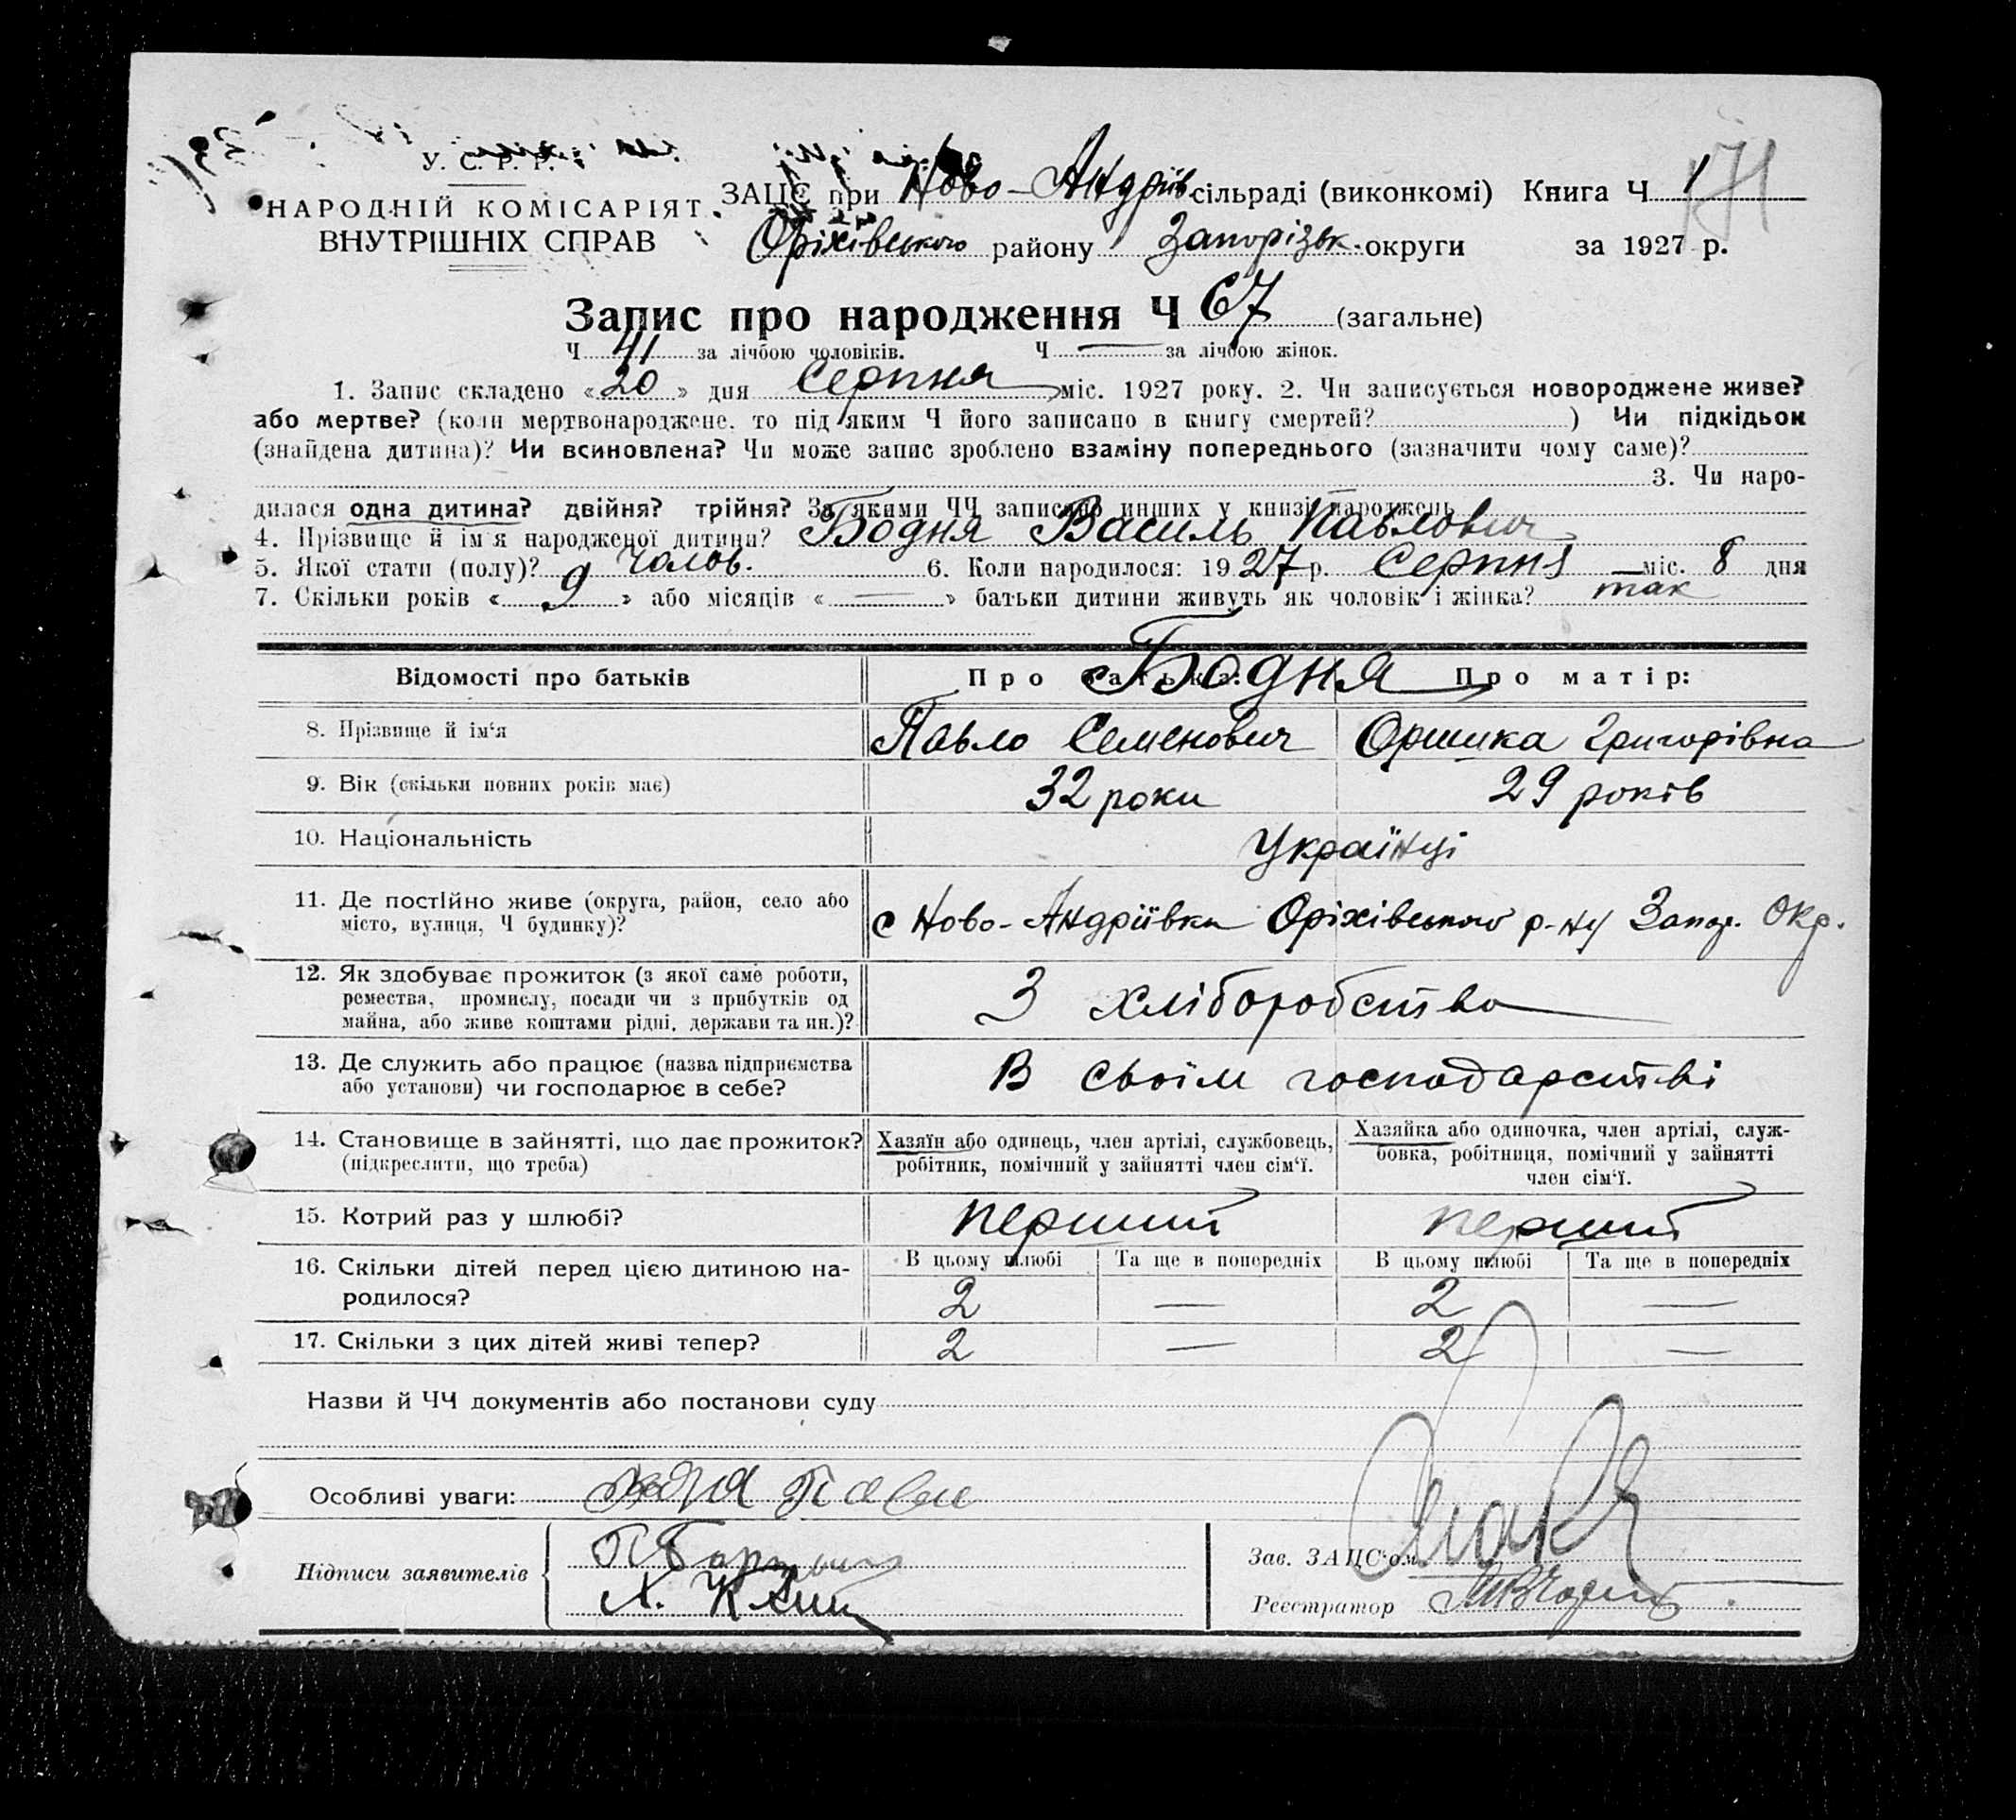 У. С. Р. Р.
НАРОДНІЙ КОМІСАРІЯТ
ВНУТРІШНІХ СПРАВ
ЗАЦС при Ново-Андріїв сільраді (виконкомі) Книга Ч 1
171
Оріхівського району Запорізьк. округи за 1927 р.
Запис про народження Ч 67 (загальне)
Ч 41 за лічбою чоловіків. Ч — за лічбою жінок.
1. Запис складено «20» дня Серпня міс. 1927 року. 2. Чи записується новороджене живе?
або мертве? (коли мертвонароджене, то під яким Ч його записано в книгу смертей? ) Чи підкідьок
(знайдена дитина)? Чи всиновлена? Чи може запис зроблено взаміну попереднього (зазначити чому саме)?
3. Чи наро-
дилася одна дитина? двійня? трійня? За якими ЧЧ записано инших у книзі народжень
4. Прізвище й ім'я народженої дитини? Бодня Василь Павлович
5. Якої стати (полу)? Чолов. 6. Коли народилося: 1927 р. Серпня міс. 8 дня
7. Скільки років «9» або місяців «—» батьки дитини живуть як чоловік і жінка? так
Відомості про батьків Про батька: Про матір:
Бодня
8. Прізвище й ім'я Павло Семенович Оришка Григорівна
9. Вік (скільки повних років має) 32 роки 29 років
10. Національність Українці
11. Де постійно живе (округа, район, село або
місто, вулиця, Ч будинку)?
с Ново-Андріївка Оріхівського р-ну Запор. Окр.
12. Як здобуває прожиток (з якої саме роботи,
ремества, промислу, посади чи з прибутків од
майна, або живе коштами рідні, держави та ин.)?
З хліборобства
13. Де служить або працює (назва підприємства
або установи) чи господарює в себе?
В своїм господарстві
14. Становище в зайнятті, що дає прожиток?
(підкреслити, що треба)
Хазяїн або одинець, член артілі, службовець,
робітник, помічний у зайнятті член сім'ї.
Хазяйка або одиночка, член артілі, служ-
бовка, робітниця, помічний у зайнятті
член сім'ї.
15. Котрий раз у шлюбі? перший перший
16. Скільки дітей перед цією дитиною на-
родилося?
В цьому шлюбі Та ще в попередніх В цьому шлюбі Та ще в попередніх
2 — 2 —
17. Скільки з цих дітей живі тепер? 2 — 2 —
Назви й ЧЧ документів або постанови суду
Особливі уваги:
Підписи заявителів
Зав. ЗАЦС'ом
Реєстратор